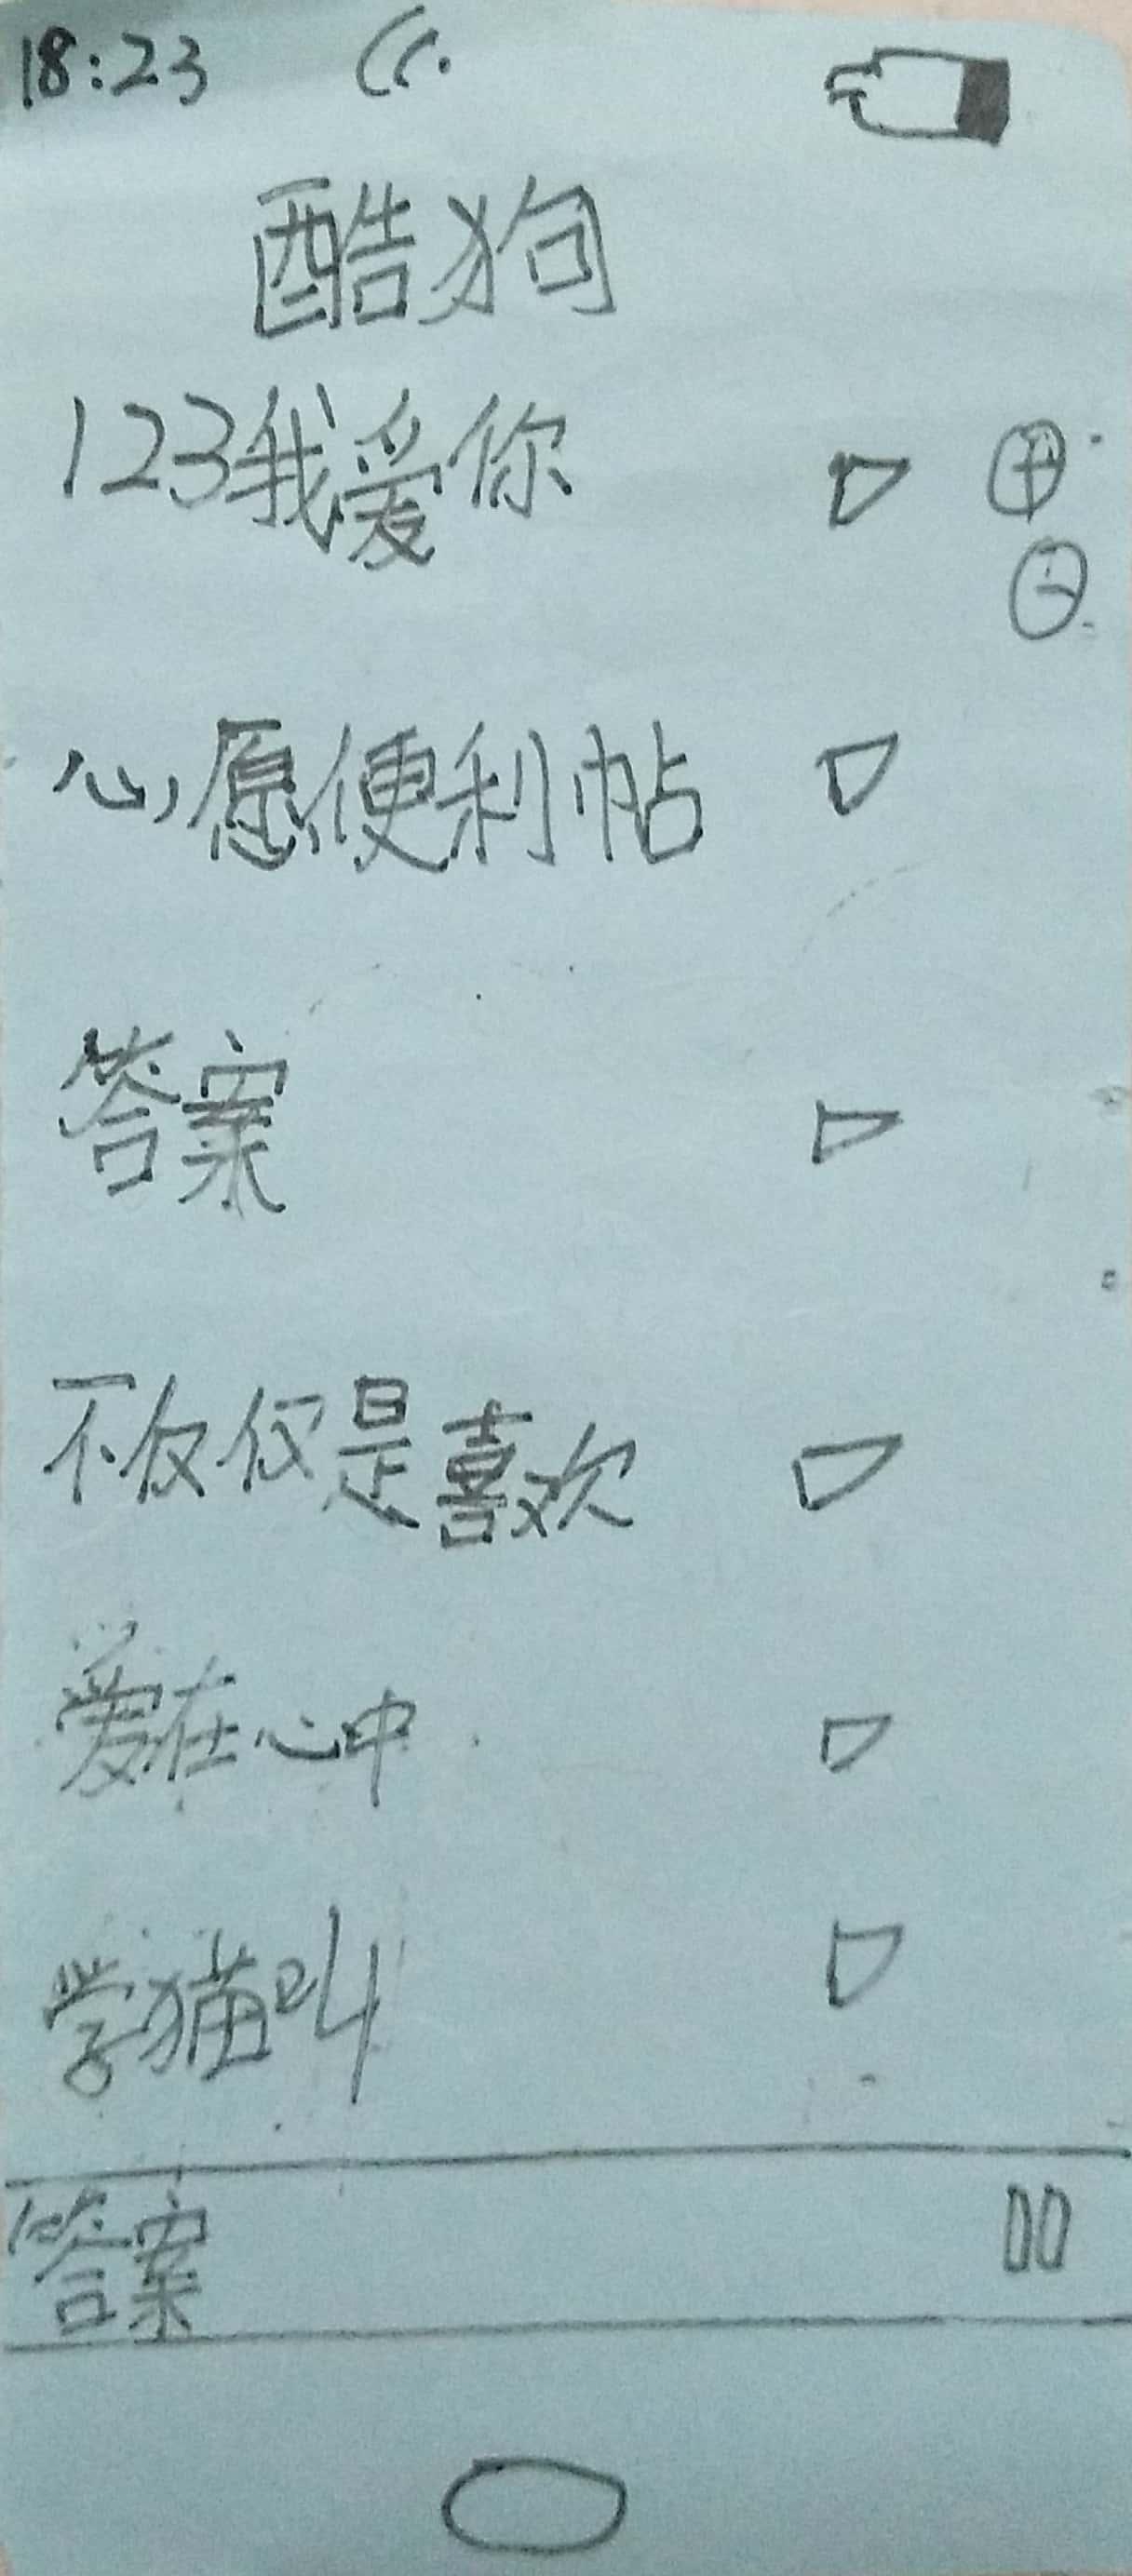 18:23
酷狗
123我爱你
心愿便利帖
答案
不仅仅是喜欢
爱在心中
学猫叫
答案